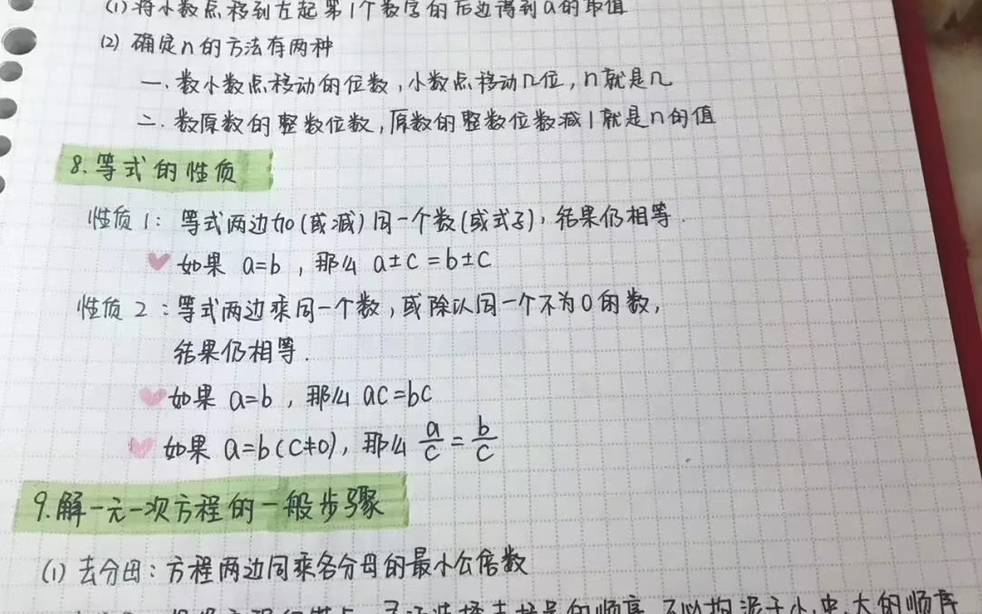 (1) 将小数点移到左起第1个数字的后边得到a的取值
(2) 确定n的方法有两种
一. 数小数点移动的位数, 小数点移动几位, n就是几
二. 数原数的整数位数, 原数的整数位数减1就是n的值
8. 等式的性质
性质1: 等式两边加(或减)同一个数(或式子), 结果仍相等.
如果 a=b , 那么 a±c=b±c
性质2: 等式两边乘同一个数, 或除以同一个不为0的数,
结果仍相等.
如果 a=b , 那么 ac=bc
如果 a=b(c≠0), 那么 a/c = b/c
9. 解一元一次方程的一般步骤
(1) 去分母: 方程两边同乘各分母的最小公倍数
的顺序